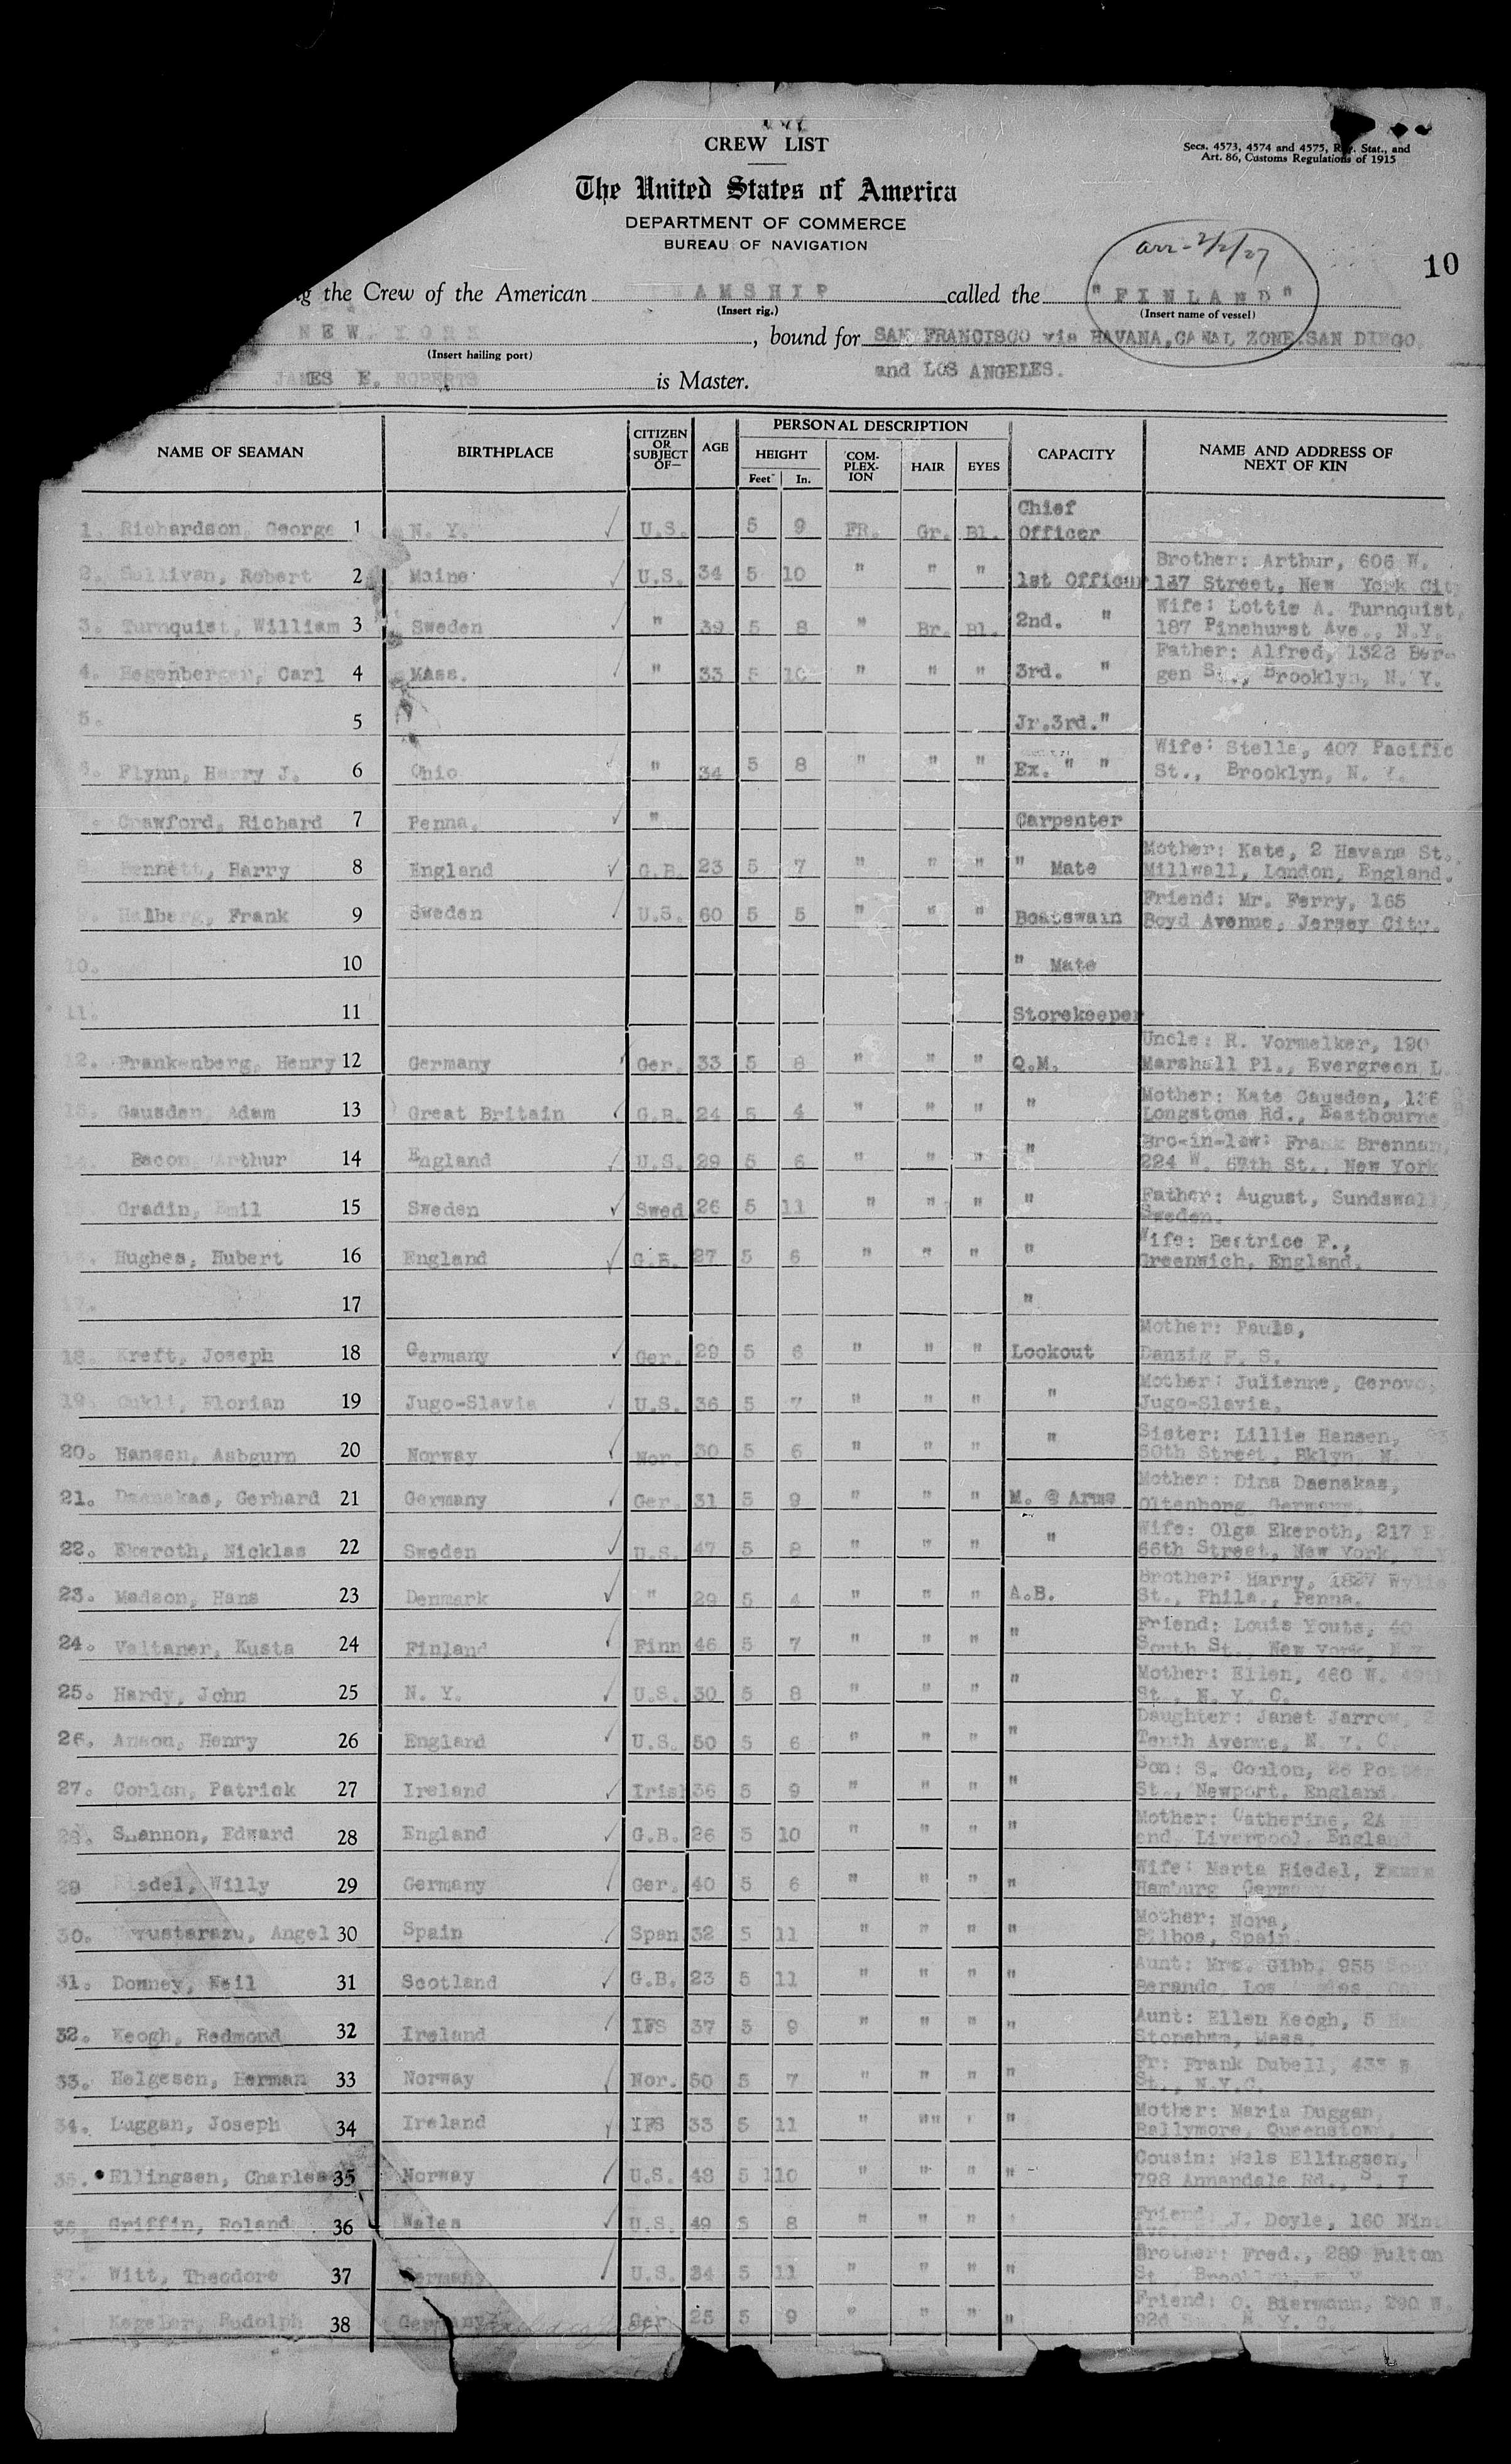 CREW LIST
Secs. 4573, 4574 and 4575, Rev. Stat., and
Art. 86, Customs Regulations of 1915
The United States of America
DEPARTMENT OF COMMERCE
BUREAU OF NAVIGATION
arr-2/2/27
10
the Crew of the American STEAMSHIP called the "FINLAND"
(Insert rig.) (Insert name of vessel)
NEW YORK, bound for SAN FRANCISCO via HAVANA, CANAL ZONE, SAN DIEGO,
(Insert hailing port)
JAMES E. ROBERTS is Master. and LOS ANGELES.
NAME OF SEAMAN BIRTHPLACE CITIZEN OR SUBJECT OF— AGE PERSONAL DESCRIPTION HEIGHT Feet In. COMPLEXION HAIR EYES CAPACITY NAME AND ADDRESS OF NEXT OF KIN
1. Richardson, George 1 N. Y. U.S. 5 9 FR. Gr. Bl. Chief Officer
2. Sullivan, Robert 2 Maine U.S. 34 5 10 " " " 1st Officer Brother: Arthur, 606 W. 187 Street, New York City
3. Turnquist, William 3 Sweden " 39 5 8 " Br. Bl. 2nd. " Wife: Lottie A. Turnquist, 187 Pinehurst Ave., N.Y.
4. Hegenberger, Carl 4 Mass. " 33 5 10 " " " 3rd. " Father: Alfred, 1328 Bergen St., Brooklyn, N. Y.
5. 5 Jr.3rd."
6. Flynn, Harry J. 6 Ohio " 34 5 8 " " " Ex. " " Wife: Stella, 407 Pacific St., Brooklyn, N. Y.
Crawford, Richard 7 Penna. " Carpenter
8. Bennett, Harry 8 England G.B. 23 5 7 " " " " Mate Mother: Kate, 2 Havana St., Millwall, London, England.
9. Halberg, Frank 9 Sweden U.S. 60 5 5 " " " Boatswain Friend: Mr. Ferry, 165 Boyd Avenue, Jersey City.
10. 10 " Mate
11. 11 Storekeeper
12. Frankenberg, Henry 12 Germany Ger. 33 5 8 " " " Q.M. Uncle: R. Vormelker, 190 Marshall Pl., Evergreen L.
13. Gausden, Adam 13 Great Britain G.B. 24 5 4 " " " " Mother: Kate Gausden, 136 Longstone Rd., Eastbourne
14. Bacon, Arthur 14 England U.S. 29 5 6 " " " " Bro-in-law: Frank Brennan, 224 W. 67th St., New York
15. Gradin, Emil 15 Sweden Swed 26 5 11 " " " " Father: August, Sundswall, Sweden.
16. Hughes, Hubert 16 England G.B. 27 5 6 " " " " Wife: Beatrice F., Greenwich, England.
17. 17 "
18. Kreft, Joseph 18 Germany Ger. 29 5 6 " " " Lookout Mother: Paula, Danzig F. S.
19. Cukli, Florian 19 Jugo-Slavia U.S. 36 5 7 " " " " Mother: Julienne, Gerovo, Jugo-Slavia,
20. Hansen, Asbgurn 20 Norway Nor. 30 5 6 " " " " Sister: Lillie Hansen, 50th Street, Bklyn, N.
21. Daenekas, Gerhard 21 Germany Ger. 31 5 9 " " " M. @ Arms Mother: Dina Daenakas, Oltenborg, Germany.
22. Ekeroth, Nicklas 22 Sweden U.S. 47 5 8 " " " " Wife: Olga Ekeroth, 217 E. 66th Street, New York, N.Y
23. Madson, Hans 23 Denmark " 29 5 4 " " " A.B. Brother: Harry, 1827 Wylie St., Phila., Penna.
24. Valtaner, Kusta 24 Finland Finn 46 5 7 " " " " Friend: Louis Youts, 40 South St., New York,
25. Hardy, John 25 N. Y. U.S. 30 5 8 " " " " Mother: Ellen, 460 W. 49th St., N. Y. C.
26. Anson, Henry 26 England U.S. 50 5 6 " " " " Daughter: Janet Jarrow, 2 Tenth Avenue, N. Y. C.
27. Conlon, Patrick 27 Ireland Irish 36 5 9 " " " " Son: S. Conlon, 26 Potter St., Newport, England
28. Shannon, Edward 28 England G.B. 26 5 10 " " " " Mother: Catherine, 2A end, Liverpool, England
29 Riedel, Willy 29 Germany Ger. 40 5 6 " " " " Wife: Marta Riedel, Hamburg Germany
30. Angel 30 Spain Span 32 5 11 " " " " Mother: Nora, Bilboa, Spain.
31. Downey, Neil 31 Scotland G.B. 23 5 11 " " " " Aunt: Mrs. Gibb, 955 Berando, Los Angeles,
32. Keogh, Redmond 32 Ireland IFS 37 5 9 " " " " Aunt: Ellen Keogh, 5 Stoneham, Mass.
33. Helgesen, Herman 33 Norway Nor. 50 5 7 " " " " Fr: Frank Dubell, 433 W St., N.Y.C.
34. Duggan, Joseph 34 Ireland IFS 33 5 11 " "" " " Mother: Maria Duggan, Ballymore, Queenstown,
35. Ellingsen, Charles 35 Norway U.S. 48 5 110 " " " " Cousin: Nels Ellingsen, 798 Annandale Rd., S. I
36. Griffin, Roland 36 Wales U.S. 49 5 8 " " " " Friend: J. Doyle, 160 Nin Ave.
37. Witt, Theodore 37 Germany U.S. 34 5 11 " " " " Brother: Fred., 289 Fulton St Brooklyn, N. Y
Kegeler, Rudolph 38 Germany Ger 25 5 9 " " " " Friend: O. Biermann, 290 W. 92d N. Y. C.